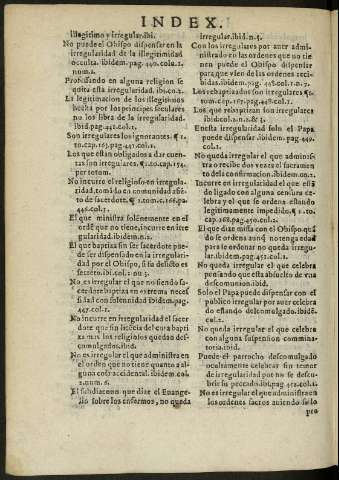 INDEX.
illegitimo y irregular. ibi.
No puede el Obispo dispensar en la
irregularidad de la illegitimidad
occulta. ibidem. pag. 440. col. 2.
num. 2.
Professando en alguna religion se
quita esta irregularidad. ibi. co. 2.
La legitimacion de los illegitimos
hecha por los principes seculares
no los libra de la irregularidad.
ibid. pag. 441. col. 1.
Son irregulares los ignorantes. ¶ 1.
to. cap. 163. pag. 441. col. 1.
Los que estan obligados a dar cuen
tas son irregulares. ¶ 1. to. cap. 154.
per totum.
No incurre el religioso en irregula-
ridad, tomando en comunidad ofi-
to de sacerdote. ¶ 1. tom. c. 166. pa.
446. col. 1.
El que ministra solénemente en el
ordē que no tiene, incurre en irre
gularidad. ibidem. nu. 2.
El que baptiza sin ser sacerdote pue-
de ser dispensado en la irregularidad
por el Obispo, si su delicto es
secreto. ibi. col. 2. nu. 3.
No es irregular el que no siendo sa-
cerdote baptiza en extrema necef
sidad con solennidad ibidem. pag.
447. col. 1.
No incurre en irregularidad el sacer
dote que sin licécia del cura bapti
za ni los religiosos quedan des-
comulgados. ibid.
No es irregular el que administra en
el orden que no tiene quanto a al-
guna cosa accidental. ibidem. col.
2. num. 6.
El subdiacono que dize el Euange-
lio sobre los enfermos, no queda
irregular. ibid. n. 5.
Con los irregulares por auer admi-
nistrado en las ordenes que no tie
nen puede el Obispo dispensar
para que vsen de las ordenes reci-
bidas. ibidem. pag. 448. col. 1. n. 7.
Los rebaptizados son irregulares ¶ 1.
tom. cap. 167. pag. 448. col. 1.
Los que rebaptizan son irregulares
ibid. col. 2. n. 2. & 3.
En esta irregularidad solo el Papa
puede dispensar. ibidem. pag. 449.
col. 1.
No queda irregular el que adminis-
tra o recibe dos vezes el sacramen
to de la confirmacion. ibidem. nu. 2.
Incurre en irregularidad el que estā
do ligado con alguna censura ce-
lebra y el que so estando
legitimamente impedido. ¶ 1. to.
cap. 168. pag. 450. col. 1.
El que dize missa con el Obispo quā
do se ordena aunq̄ no tenga edad
para se ordenar no queda irregu-
lar. ibidem. pag. 451. col. 1.
No queda irregular el que celebra
pensando que esta absuelto de vna
descomunion. ibid.
Solo el Papa puede dispensar con el
publico irregular por auer celebra
do estando descomulgado. ibidē.
col. 2.
No queda irregular el que celebra
con alguna suspension commina-
toria. ibid.
Puede el parrocho descomulgado
ocultamente celebrar sin temor
de irregularidad por no se descu-
brir su peccado. ibi. pag. 452. col. 1.
No es irregular el que administra en
los ordenes sacros auiendo se lo
pro